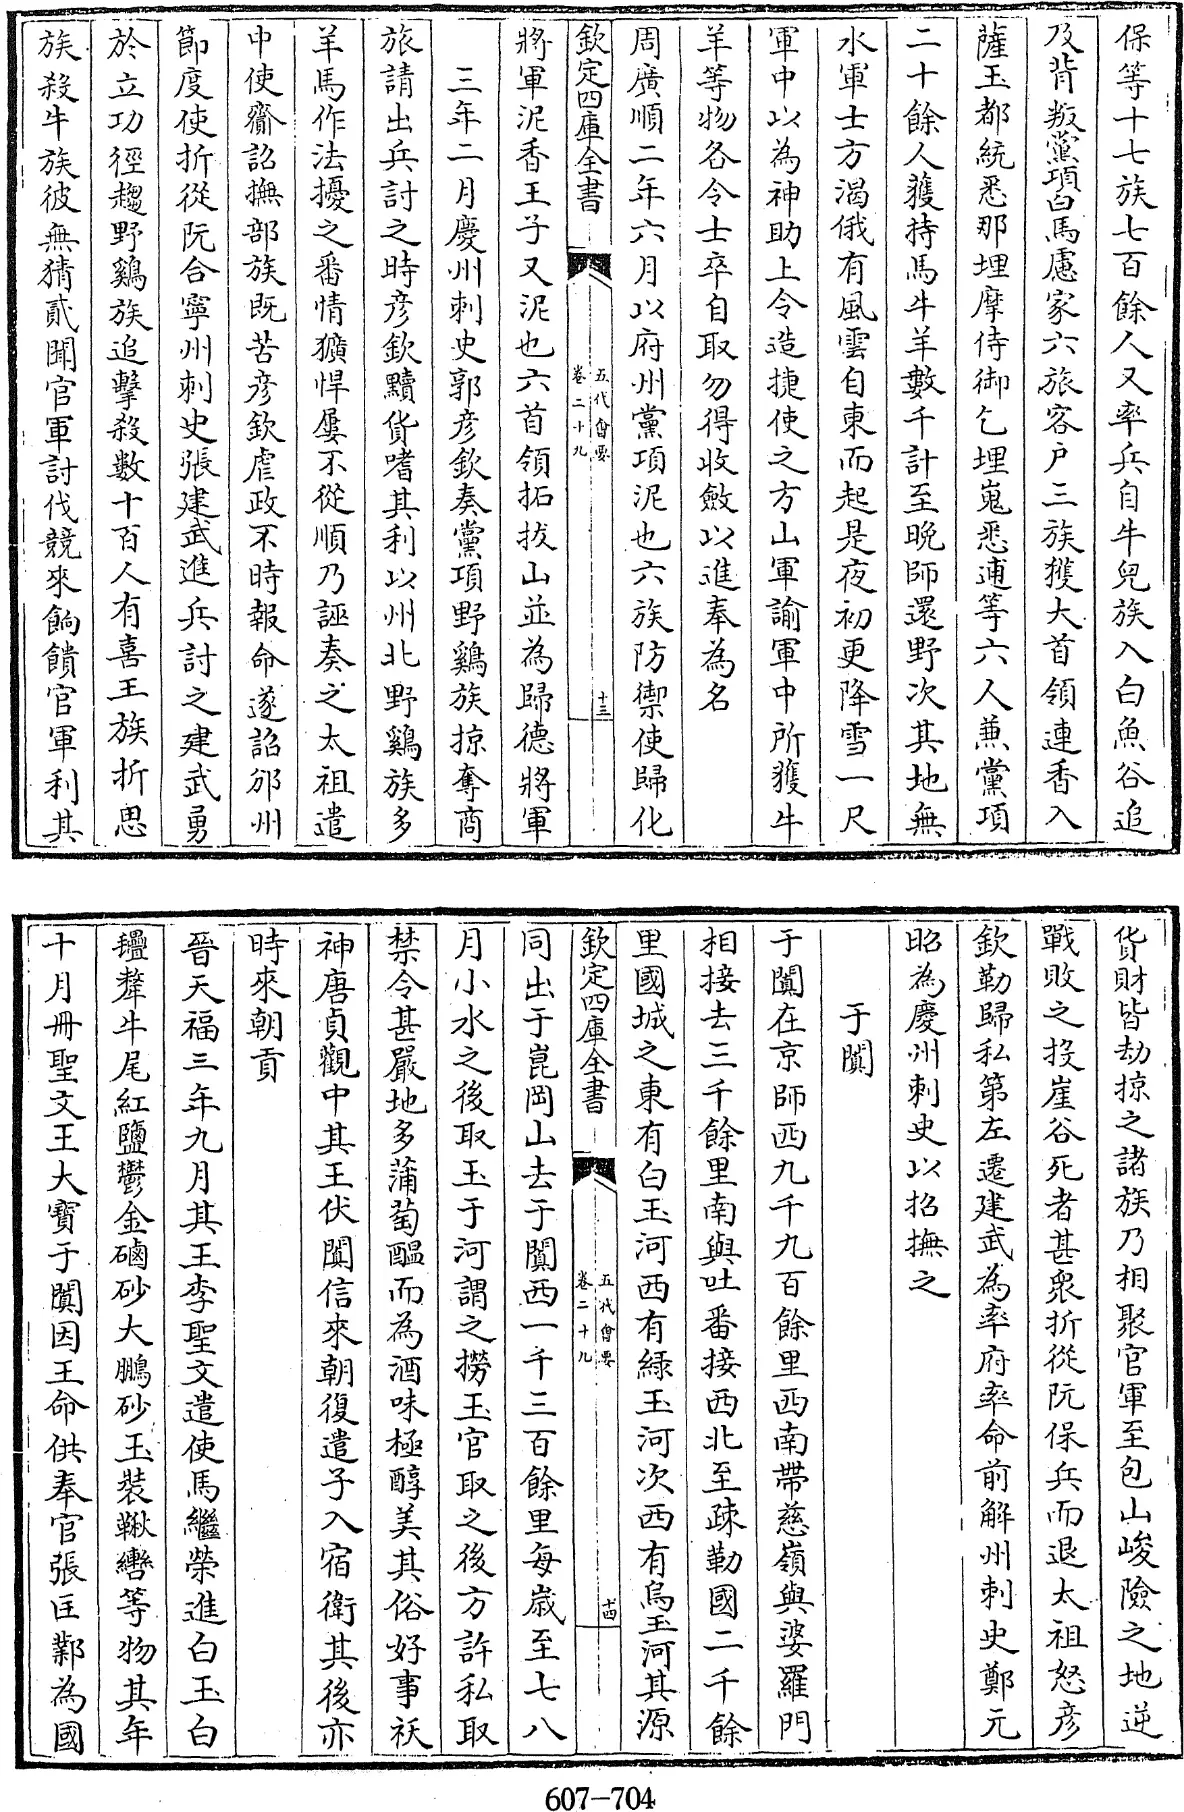 保等十七族七百餘人又率兵自牛兒族入白魚谷追
及背叛黨項白馬慮家六旅客户三族獲大首領連香入
薩王都統悉那埋摩侍御乞埋嵬悉逋等六人兼黨項
二十餘人獲持馬牛羊數千計至晩師還野次其地無
水軍士方渴俄有風雲自東而起是夜初更降雪一尺
軍中以為神助上令造捷使之方山軍諭軍中所獲牛
羊等物各令士卒自取勿得收斂以進奉為名
周廣順二年六月以府州黨項泥也六族防禦使歸化
欽定四庫全書
五代會要
卷二十九
十三
將軍泥香王子又泥也六首領拓拔山並為歸德將軍
三年二月慶州刺史郭彦欽奏黨項野鷄族掠奪商
旅請出兵討之時彦欽黷貨嗜其利以州北野鷄族多
羊馬作法擾之番情獷悍屢不從順乃誣奏之太祖遣
中使齎詔撫部族既苦彦欽虐政不時報命遂詔邠州
節度使折從阮合寧州刺史張建武進兵討之建武勇
於立功徑趨野鷄族追擊殺數十百人有喜王族折思
族殺牛族彼無猜貳聞官軍討伐競來餉饋官軍利其
貨財皆刼掠之諸族乃相聚官軍至包山峻險之地逆
戰敗之投崖谷死者甚衆折從阮保兵而退太祖怒彦
欽勒歸私第左遷建武為率府率命前解州刺史鄭元
昭為慶州刺史以招撫之
于闐
于闐在京師西九千九百餘里西南帶慈嶺與婆羅門
相接去三千餘里南與吐番接西北至疎勒國二千餘
里國城之東有白玉河西有緑玉河次西有烏玉河其源
欽定四庫全書
五代會要
卷二十九
十四
同出于崑岡山去于闐西一千三百餘里每歲至七八
月小水之後取玉于河謂之撈玉官取之後方許私取
禁令甚嚴地多蒲萄醖而為酒味極醇美其俗好事祅
神唐貞觀中其王伏闐信來朝復遣子入宿衛其後亦
時來朝貢
晉天福三年九月其王李聖文遣使馬繼榮進白玉白
氎犛牛尾紅鹽鬱金硇砂大鵬砂玉裝鞦轡等物其年
十月冊聖文王大寶于闐因王命供奉官張匡鄴為國
607-704